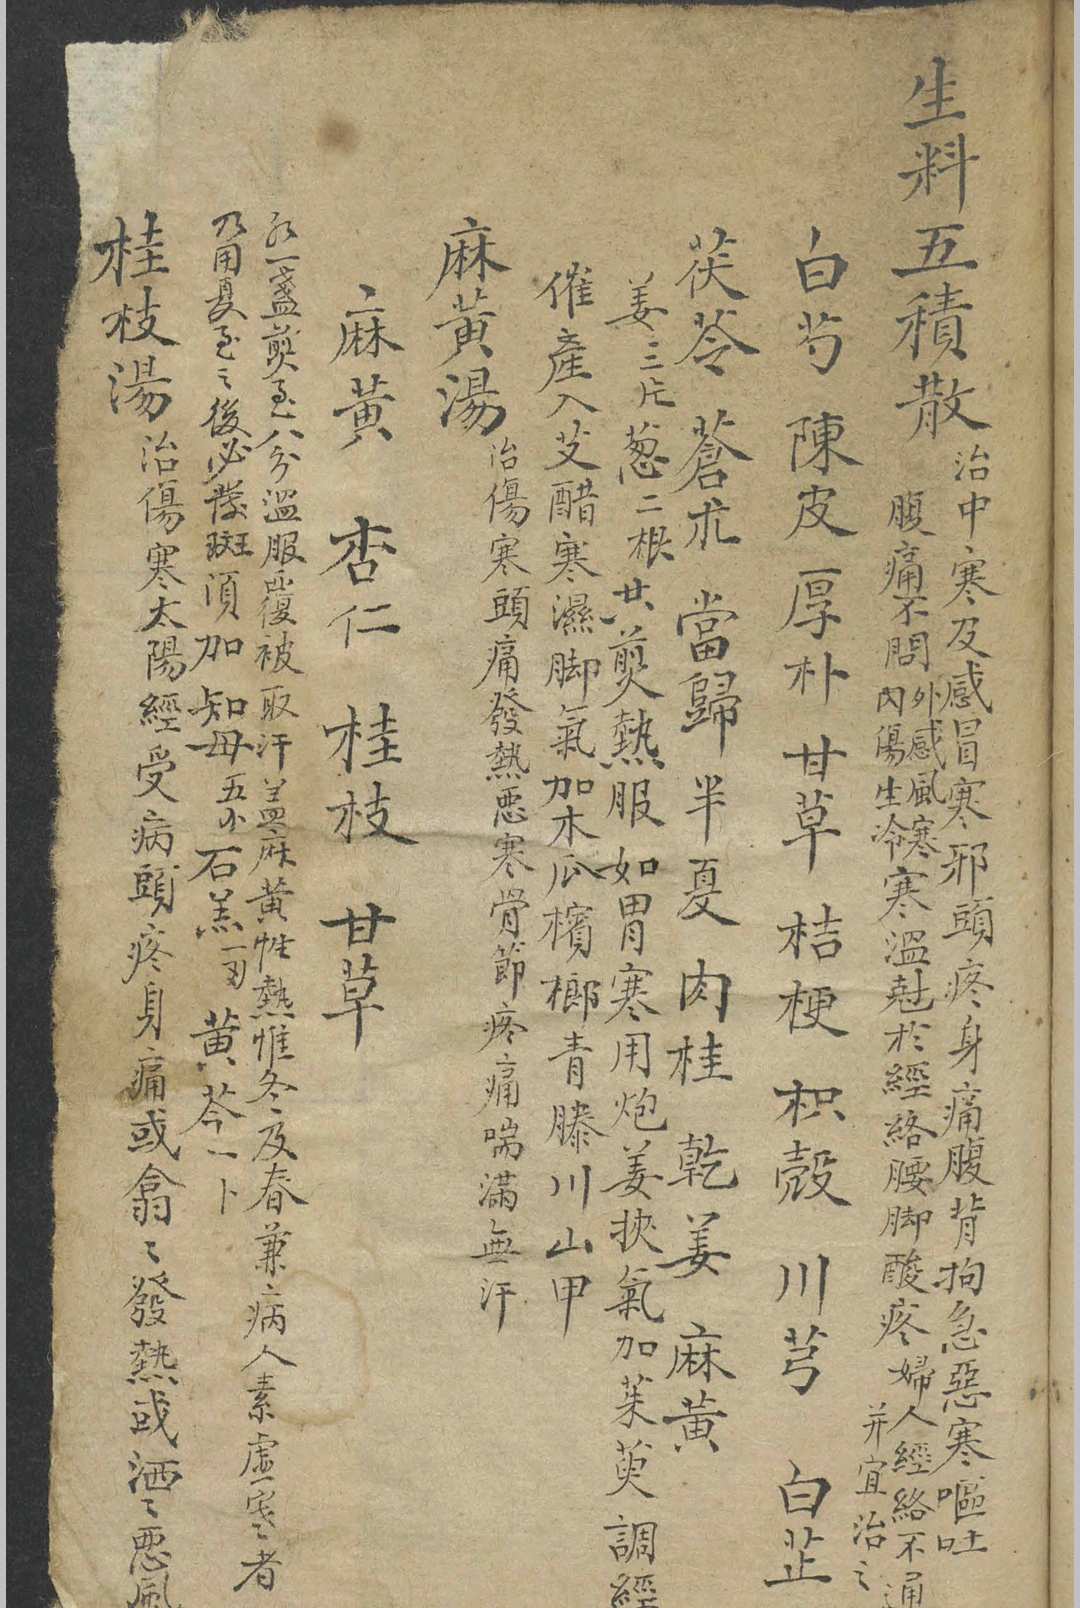 生料五積散
治中寒及感冒寒邪頭疼身痛腹背拘急惡寒嘔吐
腹痛不問外感風寒內傷生冷寒溫尅於經絡腰脚酸疼婦人經絡不通
并宜治之
白芍 陳皮 厚朴 甘草 桔梗 枳殼 川芎 白芷
茯苓 蒼朮 當歸 半夏 肉桂 乾姜 麻黃
姜三片葱二根廿煎熱服如胃寒用炮姜挾氣加茱萸調經
催產入艾醋寒濕脚氣加木瓜檳榔青滕川山甲
麻黃湯 治傷寒頭痛發熱惡寒骨節疼痛喘滿無汗
麻黃 杏仁 桂枝 甘草
水一盞煎至八分溫服覆被取汗盖麻黃性熱惟冬及春兼病人素虛寒者
乃用夏至之後必發斑須加知母五卜石羔一刄黃芩一卜
桂枝湯 治傷寒太陽經受病頭疼身痛或翕〻發熱或洒〻悪風